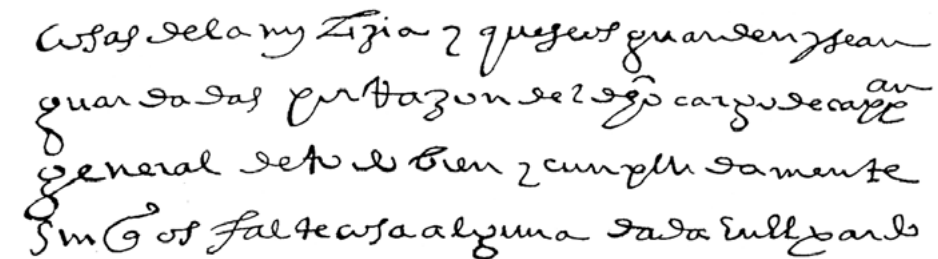 cosas de la mylizia y que se os guarden y sean
guardadas por Razon del dho cargo de capp an
general de todo bien y cunplidamente
sin q os falte cosa alguna dada en el pardo